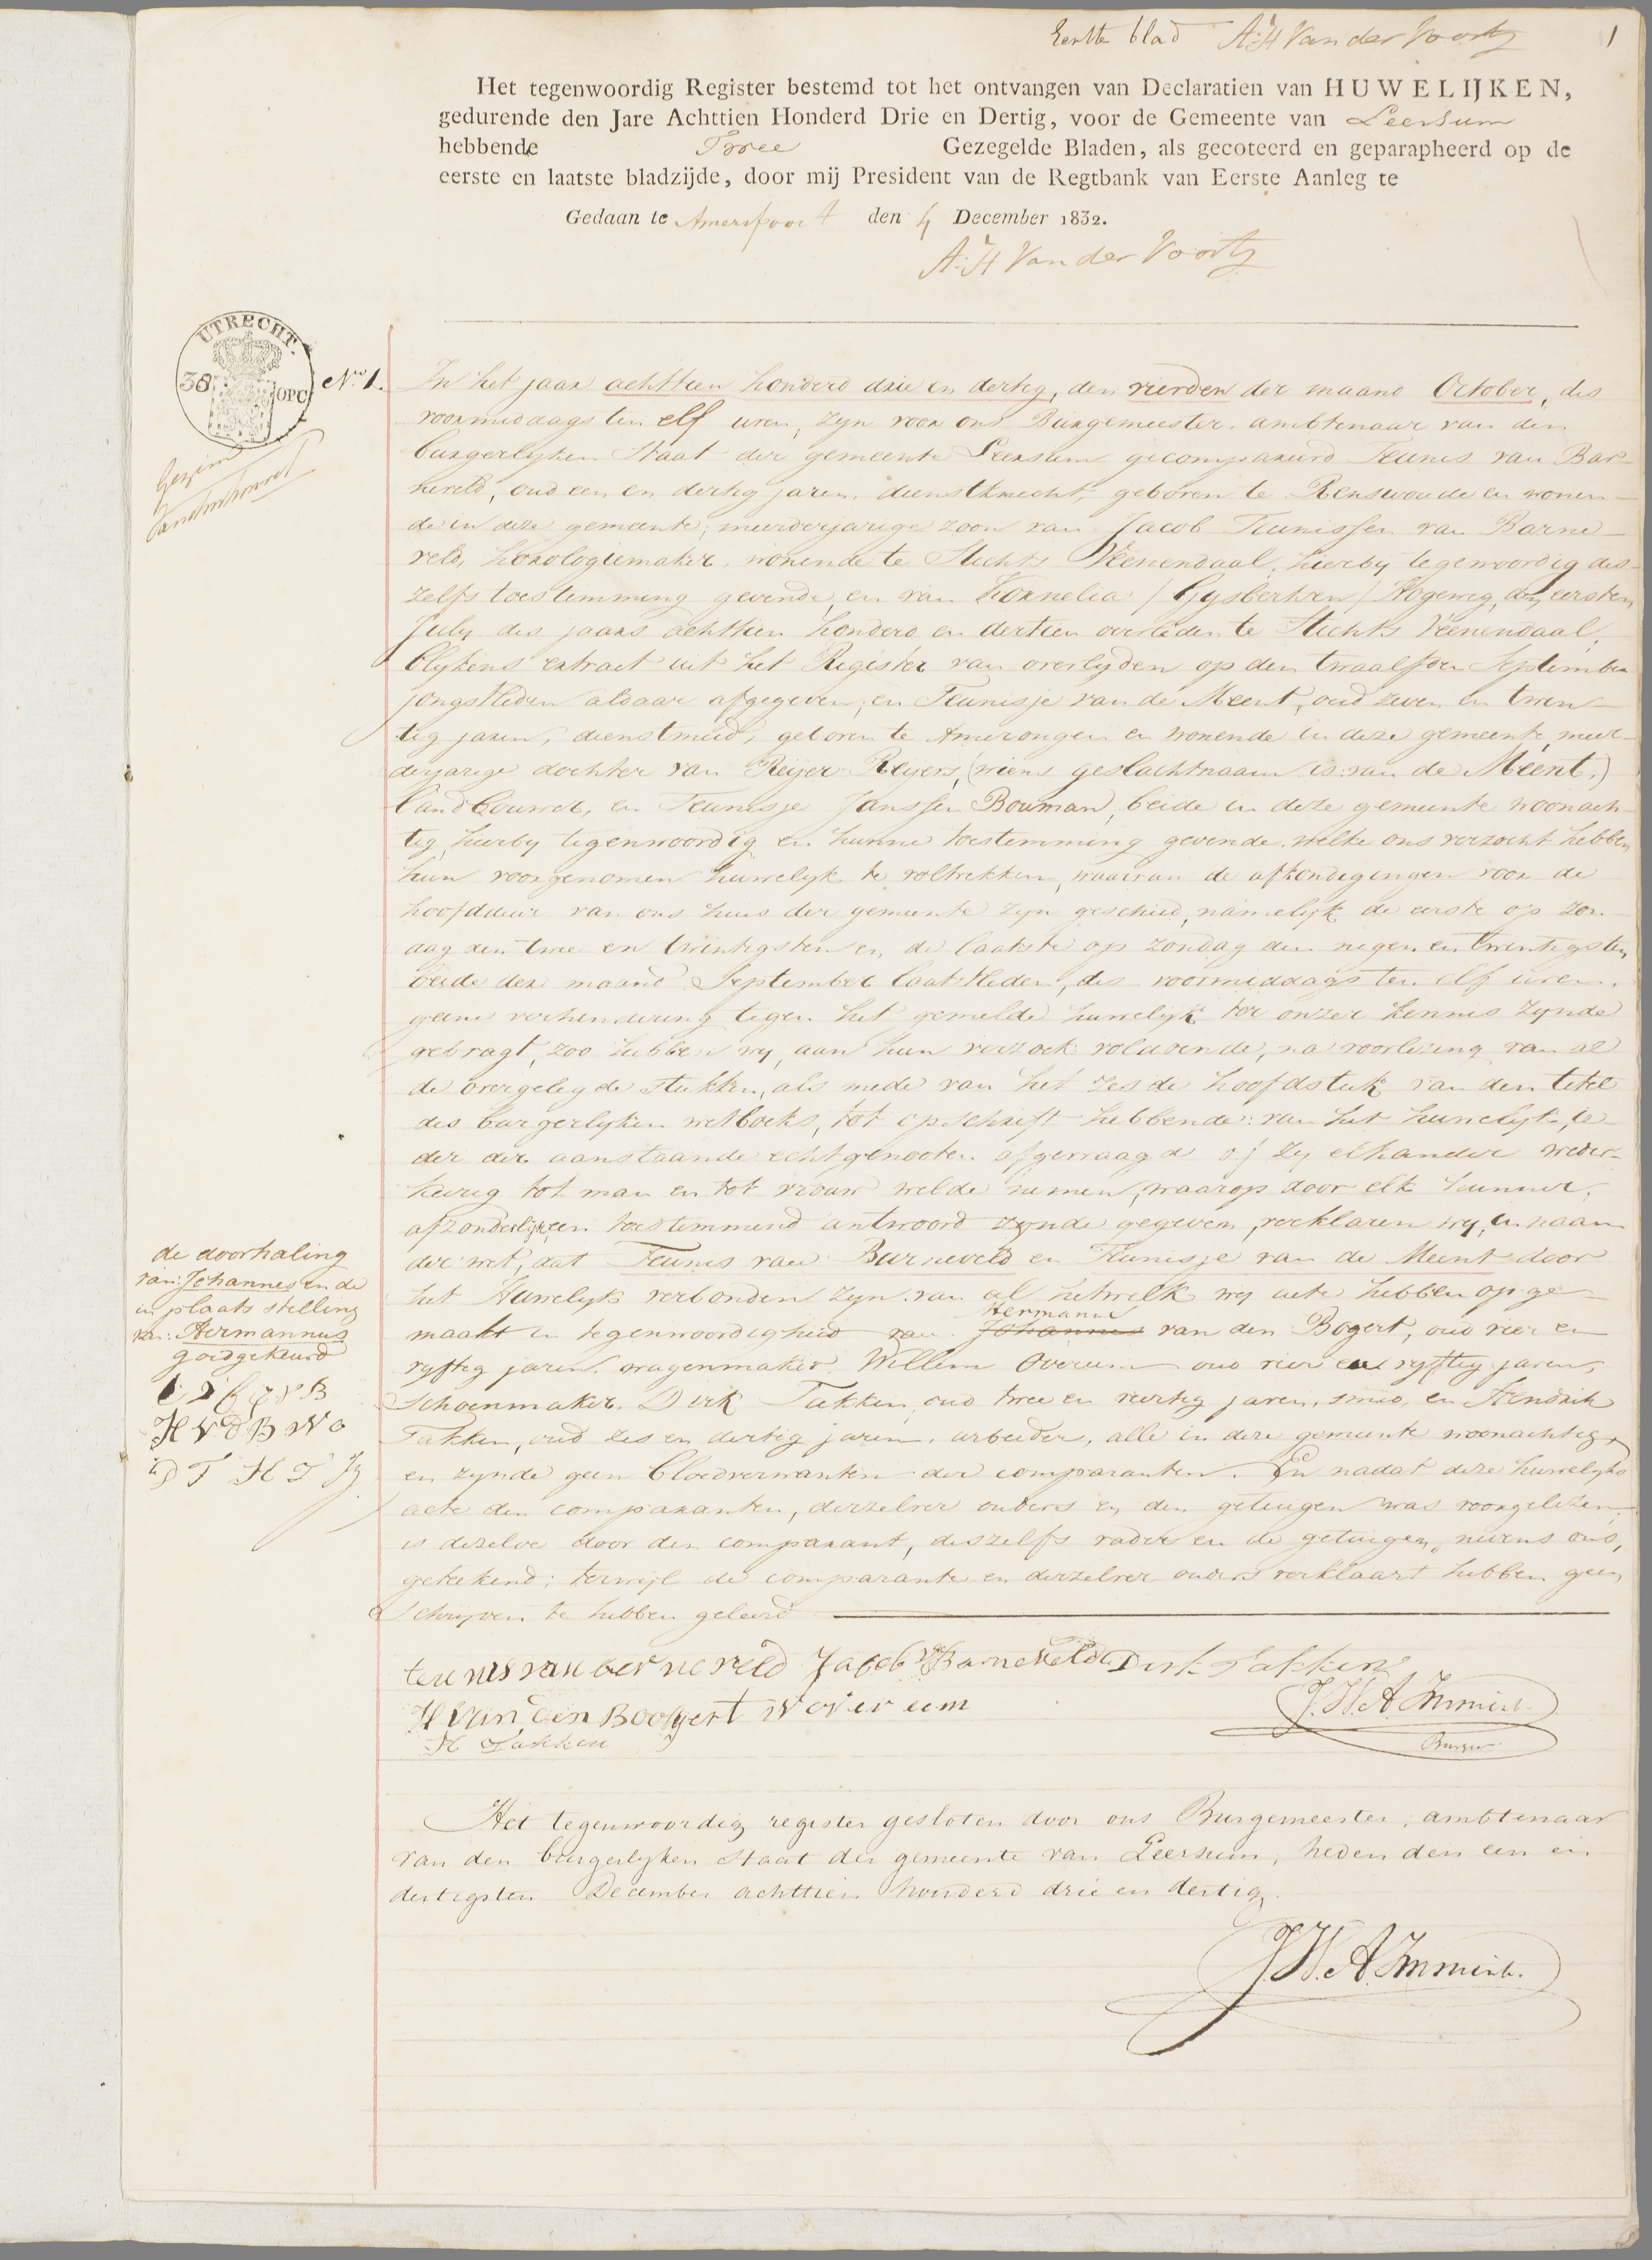 Eerste blad A:H Van der Voort 1
Het tegenwoordig Register bestemd tot het ontvangen van Declaratien van HUWELIJKEN,
gedurende den Jare Achttien Honderd Drie en Dertig, voor de Gemeente van Leersum
hebbende Twee Gezegelde Bladen, als gecoteerd en geparapheerd op de
eerste en laatste bladzijde, door mij President van de Regtbank van Eerste Aanleg te
Gedaan te Amersfoort den 4 December 1832.
A:H Van der Voort
UTRECHT.
38 OPC
No 1.
In het jaar achttien honderd drie en dertig, den vierden der maand October, des
voormiddags ten elf uren, zyn voor ons Burgemeester ambtenaar van den
burgerlyken Staat der gemeente Leersum gecompareerd Teunis van Bar-
neveld, oud een en dertig jaren, dienstknecht, geboren te Renswoude en wonen-
de in deze gemeente, meerderjarige zoon van Jacob Teunissen van Barne-
veld, horologiemaker, wonende te Stichts Veenendaal, hierby tegenwoordig des-
zelfs toestemming gevende, en van Kornelia / Gysbertsen / Hogeweg, den eersten
July des jaars achttien honderd en dertien overleden te Stichts Veenendaal,
blykens extract uit het Register van overlyden op den twaalfden September
jongstleden aldaar afgegeven; en Teunisje van de Meent, oud zeven en twin-
tig jaren, dienstmeid, geboren te Amerongen en wonende in deze gemeente, meer-
derjarige dochter van Reijer Reijers, (wiens geslachtnaam is: van de Meent,)
landbouwer, en Teunisje Janssen Bouman, beide in deze gemeente woonach-
tig, hierby tegenwoordig en hunne toestemming gevende, welke ons verzocht hebben
hun voorgenomen huwelyk te voltrekken, waarvan de afkondigingen voor de
hoofddeur van ons huis der gemeente zyn geschied, namelyk de eerste op zon-
dag den twee en twintigsten en de laatste op zondag den negen en twintigsten
beide der maand September laatstleden, des voormiddags ten elf uren,
geene verhindering tegen het gemelde huwelyk ter onzer kennis zynde
gebragt, zoo hebben wy, aan hun verzoek voldoende, na voorlezing van al
de overgelegde stukken, als mede van het zesde hoofdstuk van den titel
des burgerlyken wetboeks, tot opschrift hebbende: van het huwelyk, ie-
der der aanstaande echtgenooten afgevraagd of zy elkander weder-
keerig tot man en tot vrouw wilde nemen, waarop door elk hunner,
afzonderlyk, een toestemmend antwoord zynde gegeven, verklaren wy, in naam
der wet, dat Teunis van Barneveld en Teunisje van de Meent door
het Huwelyk verbonden zyn. van al hetwelk wy acte hebben opge-
Hermanus
maakt in tegenwoordigheid van Johannes van den Bogert, oud vier en
vyftig jaren, wagenmaker, Willem Overeem oud vier en vyftig jaren,
Schoenmaker, Dirk Takken, oud twee en veertig jaren, smid, en Hendrik
Takken, oud zes en dertig jaren, arbeider, alle in deze gemeente woonachtig,
en zynde geen bloedverwanten der comparanten. En nadat deze huwelyks
acte den comparanten, derzelver ouders en den getuigen was voorgelezen,
is dezelve door den comparant, deszelfs vader en de getuigen, nevens ons,
geteekend; terwyl de comparante en derzelver ouders verklaart hebben geen
schryven te hebben geleerd
de doorhaling
van: Johannes en de
in plaats stelling
van: Hermannus
goedgekeurd
H V D B W O
D T H T
teunis van berneveld Jacob v Barneveld Dirk Takken
H van den Boogert W over eem
H Takken
J.W.A. Immink
Burgem
Het tegenwoordig register gesloten door ons Burgemeester, ambtenaar
van den burgerlyken staat der gemeente van Leersum, heden den een en
dertigsten December achttien honderd drie en dertig.
J.W.A. Immink.